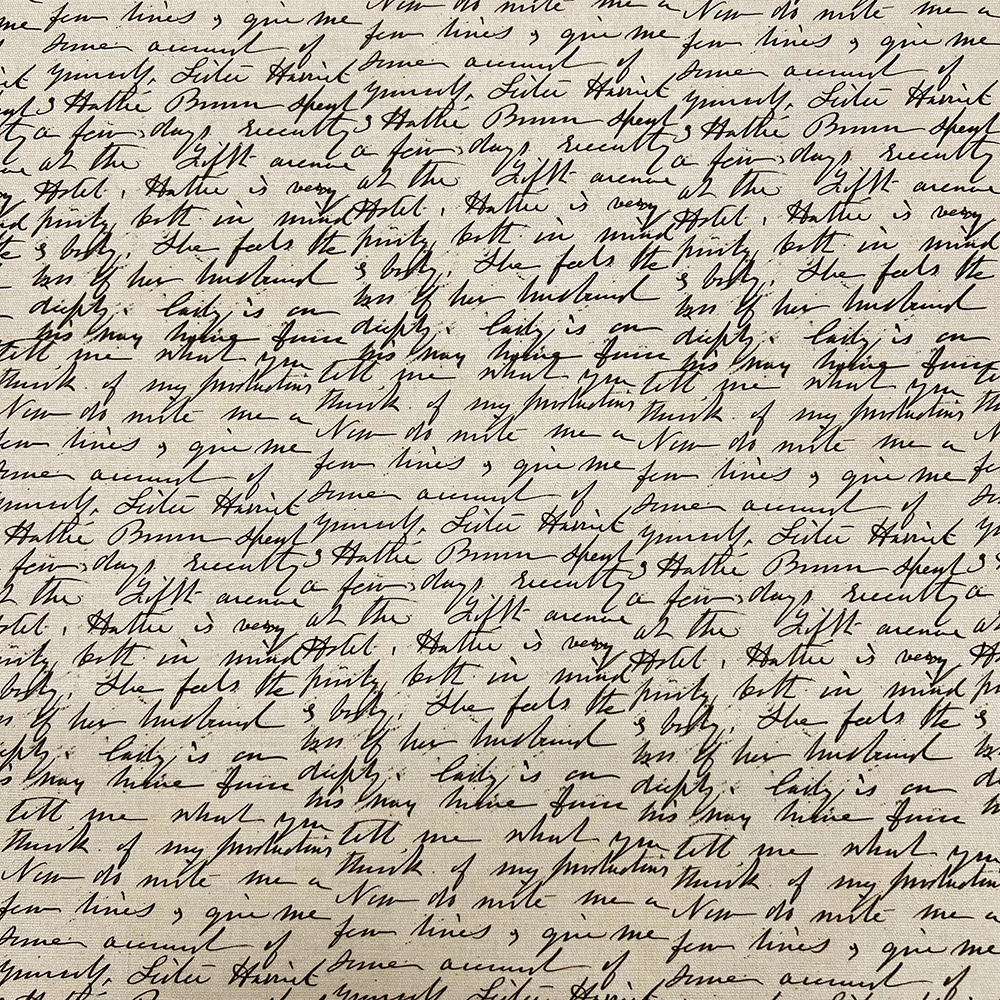 few lines & give me
some account of
yourself, Sister Harriet
& Hattie Brown spent
a few days recently
at the Fifth avenue
Hotel. Hattie is very
both in mind
& body. She feels the
loss of her husband
deeply. is on
his way home from
tell me what you
think of my productions
Now do write me a
few lines & give me
some account of
yourself, Sister Harriet
Hattie Brown spent
few days recently
at the Fifth avenue
Hotel. Hattie is very
both in mind
body. She feels the
of her husband
deeply. is on
his way home from
tell me what you
think of my productions
Now do write me a
few lines & give me
some account of
yourself, Sister Harriet
Now do write me a
few lines & give me
some account of
yourself, Sister Harriet
& Hattie Brown spent
a few days recently
at the Fifth avenue
Hotel. Hattie is very
both in mind
& body. She feels the
loss of her husband
deeply. is on
his way home from
tell me what you
think of my productions
Now do write me a
few lines & give me
some account of
yourself, Sister Harriet
& Hattie Brown spent
a few days recently
at the Fifth avenue
Hotel. Hattie is very
both in mind
& body. She feels the
loss of her husband
deeply. is on
his way home from
tell me what you
think of my productions
Now do write me a
few lines & give me
some account of
yourself, Sister Harriet
Now do write me a
few lines & give me
some account of
yourself, Sister Harriet
& Hattie Brown spent
a few days recently
at the Fifth avenue
Hotel. Hattie is very
both in mind
& body. She feels the
loss of her husband
deeply. is on
his way home from
tell me what you
think of my productions
Now do write me a
few lines & give me
some account of
yourself, Sister Harriet
& Hattie Brown spent
a few days recently
at the Fifth avenue
Hotel. Hattie is very
both in mind
& body. She feels the
loss of her husband
deeply. is on
his way home from
tell me what you
think of my productions
Now do write me a
few lines & give me
some account of